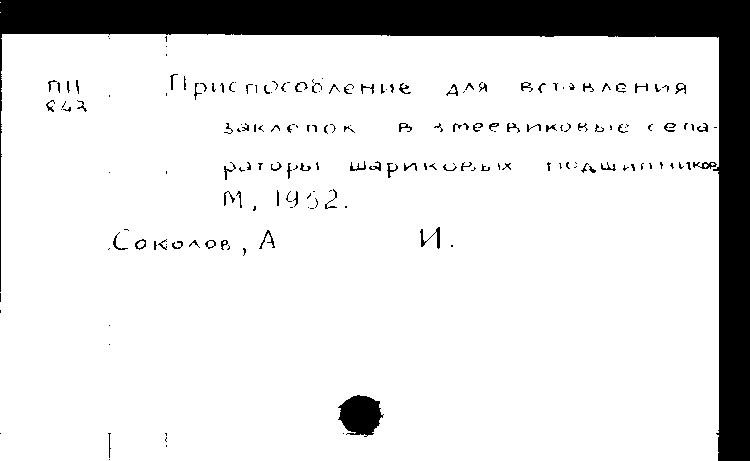 ПП Приспособление для вставления
заклепок в змеевиковые сепа-
раторы шариковых подшипников
М, 1952.
Соколов, А И.